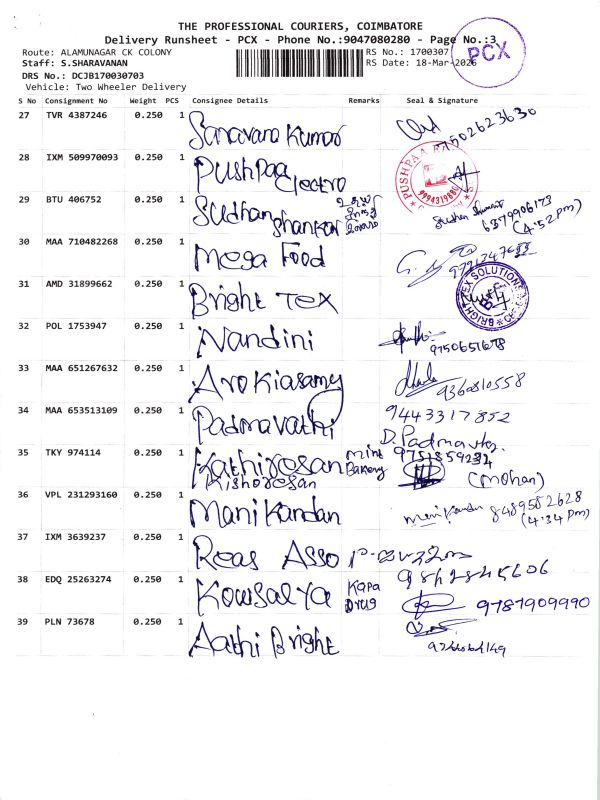 THE PROFESSIONAL COURIERS, COIMBATORE
Delivery Runsheet - PCX - Phone No.:9047080280 - Page No.:3
Route: ALAMUNAGAR CK COLONY
RS No.: 1700307
PCX
Staff: S.SHARAVANAN
RS Date: 18-Mar-2026
DRS No.: DCJB170030703
Vehicle: Two Wheeler Delivery
S No Consignment No Weight PCS Consignee Details Remarks Seal & Signature
27 TVR 4387246 0.250 1 Saravana Kumar 7502623630
28 IXM 509970093 0.250 1 Pushpaa Electro PUSHPAA
29 BTU 406752 0.250 1 Sudhan Shankar 6379906173 (4:52 pm)
30 MAA 710482268 0.250 1 Mega Food
31 AMD 31899662 0.250 1 Bright Tex BRIGHT TEX SOLUTION
32 POL 1753947 0.250 1 Nandini 9750651678
33 MAA 651267632 0.250 1 Arokiasamy 9360810558
34 MAA 653513109 0.250 1 Padmavathi 9443317852
D. Padmavathi
35 TKY 974114 0.250 1 Kathiresan Kishoresan mint Bakery 9751859234 (Mohan)
36 VPL 231293160 0.250 1 Manikandan Manikandan 8489582628 (4:34 pm)
37 IXM 3639237 0.250 1 Reas Asso
38 EDQ 25263274 0.250 1 Kowsalya Kapa Drug 9787909990
39 PLN 73678 0.250 1 Aathi Bright